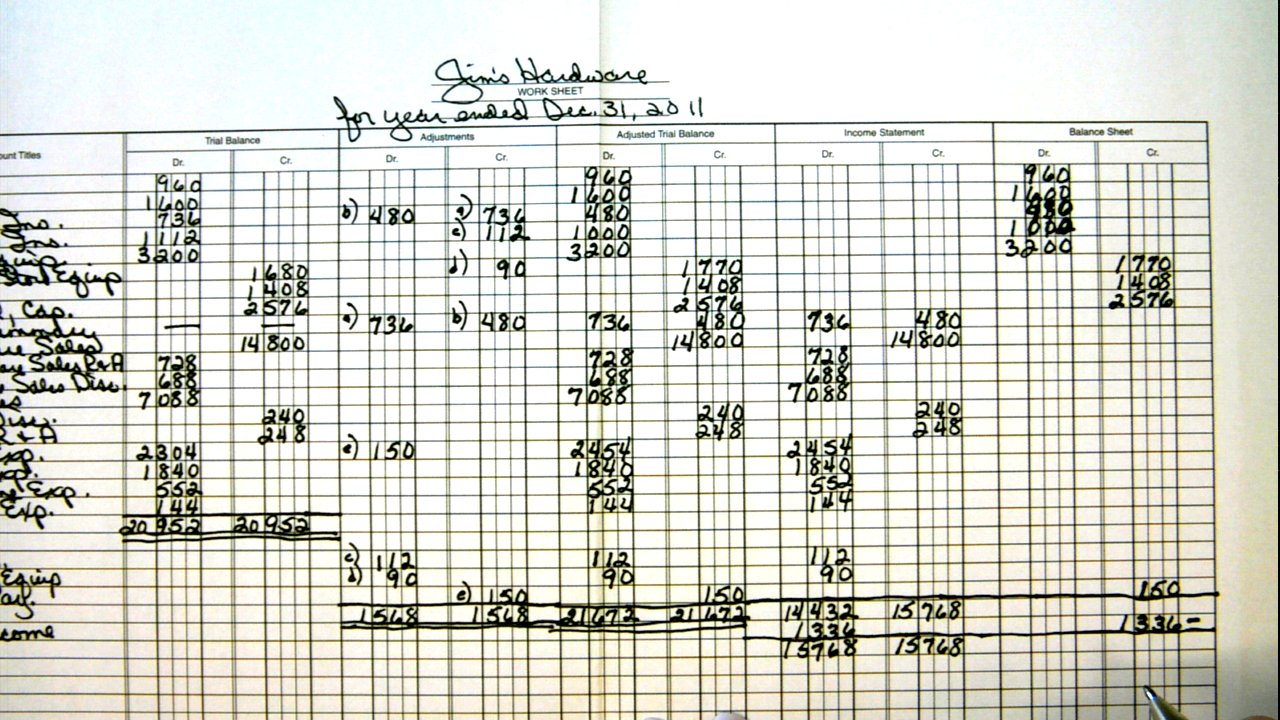 Jim's Hardware
WORK SHEET
for year ended Dec. 31, 2011
Trial Balance Adjustments Adjusted Trial Balance Income Statement Balance Sheet
ount Titles Dr. Cr. Dr. Cr. Dr. Cr. Dr. Cr. Dr. Cr.
960 960 960
1600 1600 1600
Ins. 736 b) 480 a) 736 480 480
Ins. 1112 c) 112 1000 1000
quip. 3200 3200 3200
Store Equip 1680 d) 90 1770 1770
1408 1408 1408
, Cap. 2576 2576 2576
ummary — — a) 736 b) 480 736 480 736 480
are Sales 14800 14800 14800
are Sales R+A 728 728 728
Sales Disc. 688 688 688
es 7088 7088 7088
Disc. 240 240 240
R + A 248 248 248
xp. 2304 e) 150 2454 2454
xp. 1840 1840 1840
Exp. 552 552 552
Exp. 144 144 144
20952 20952
c) 112 112 112
Equip d) 90 90 90
ay. e) 150 150 150
1568 1568 21672 21672 14432 15768
come 1336 1336-
15768 15768